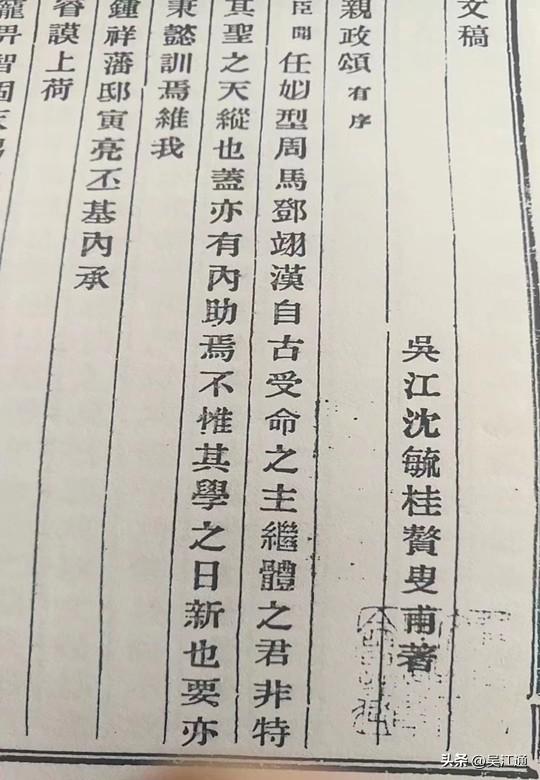 文稿
吳江沈毓桂贅叟甫著
親政頌有序
臣聞任姒型周馬鄧翊漢自古受命之主繼體之君非特
其聖之天縱也蓋亦有內助焉不惟其學之日新也要亦
秉懿訓焉維我
鍾祥藩邸寅亮丕基內承
睿謨上荷
頭条 @吴江通